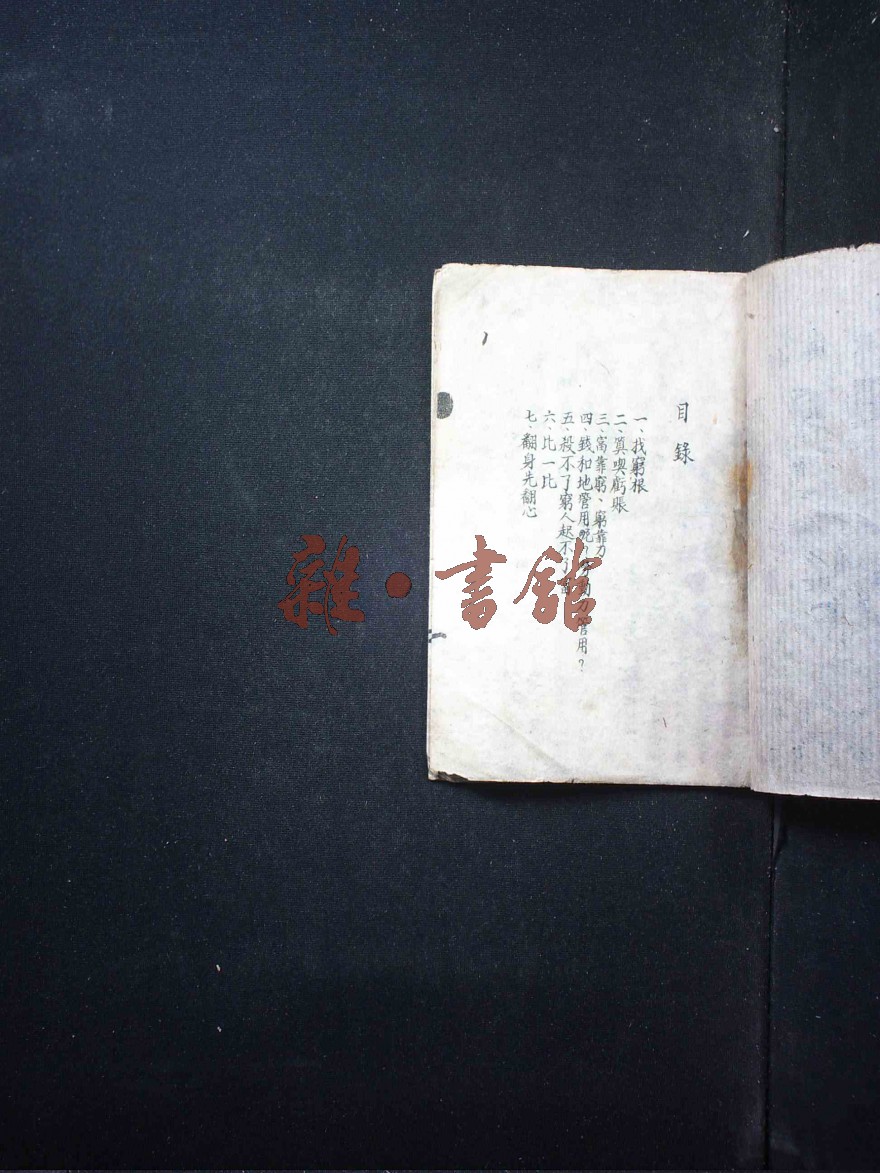 目錄
一、找窮根
二、算喫虧賬
三、富靠窮、窮靠力
四、錢和地管用呢？動力管用？
五、殺不了窮人起不了
六、比一比
七、翻身先翻心
雜·書館